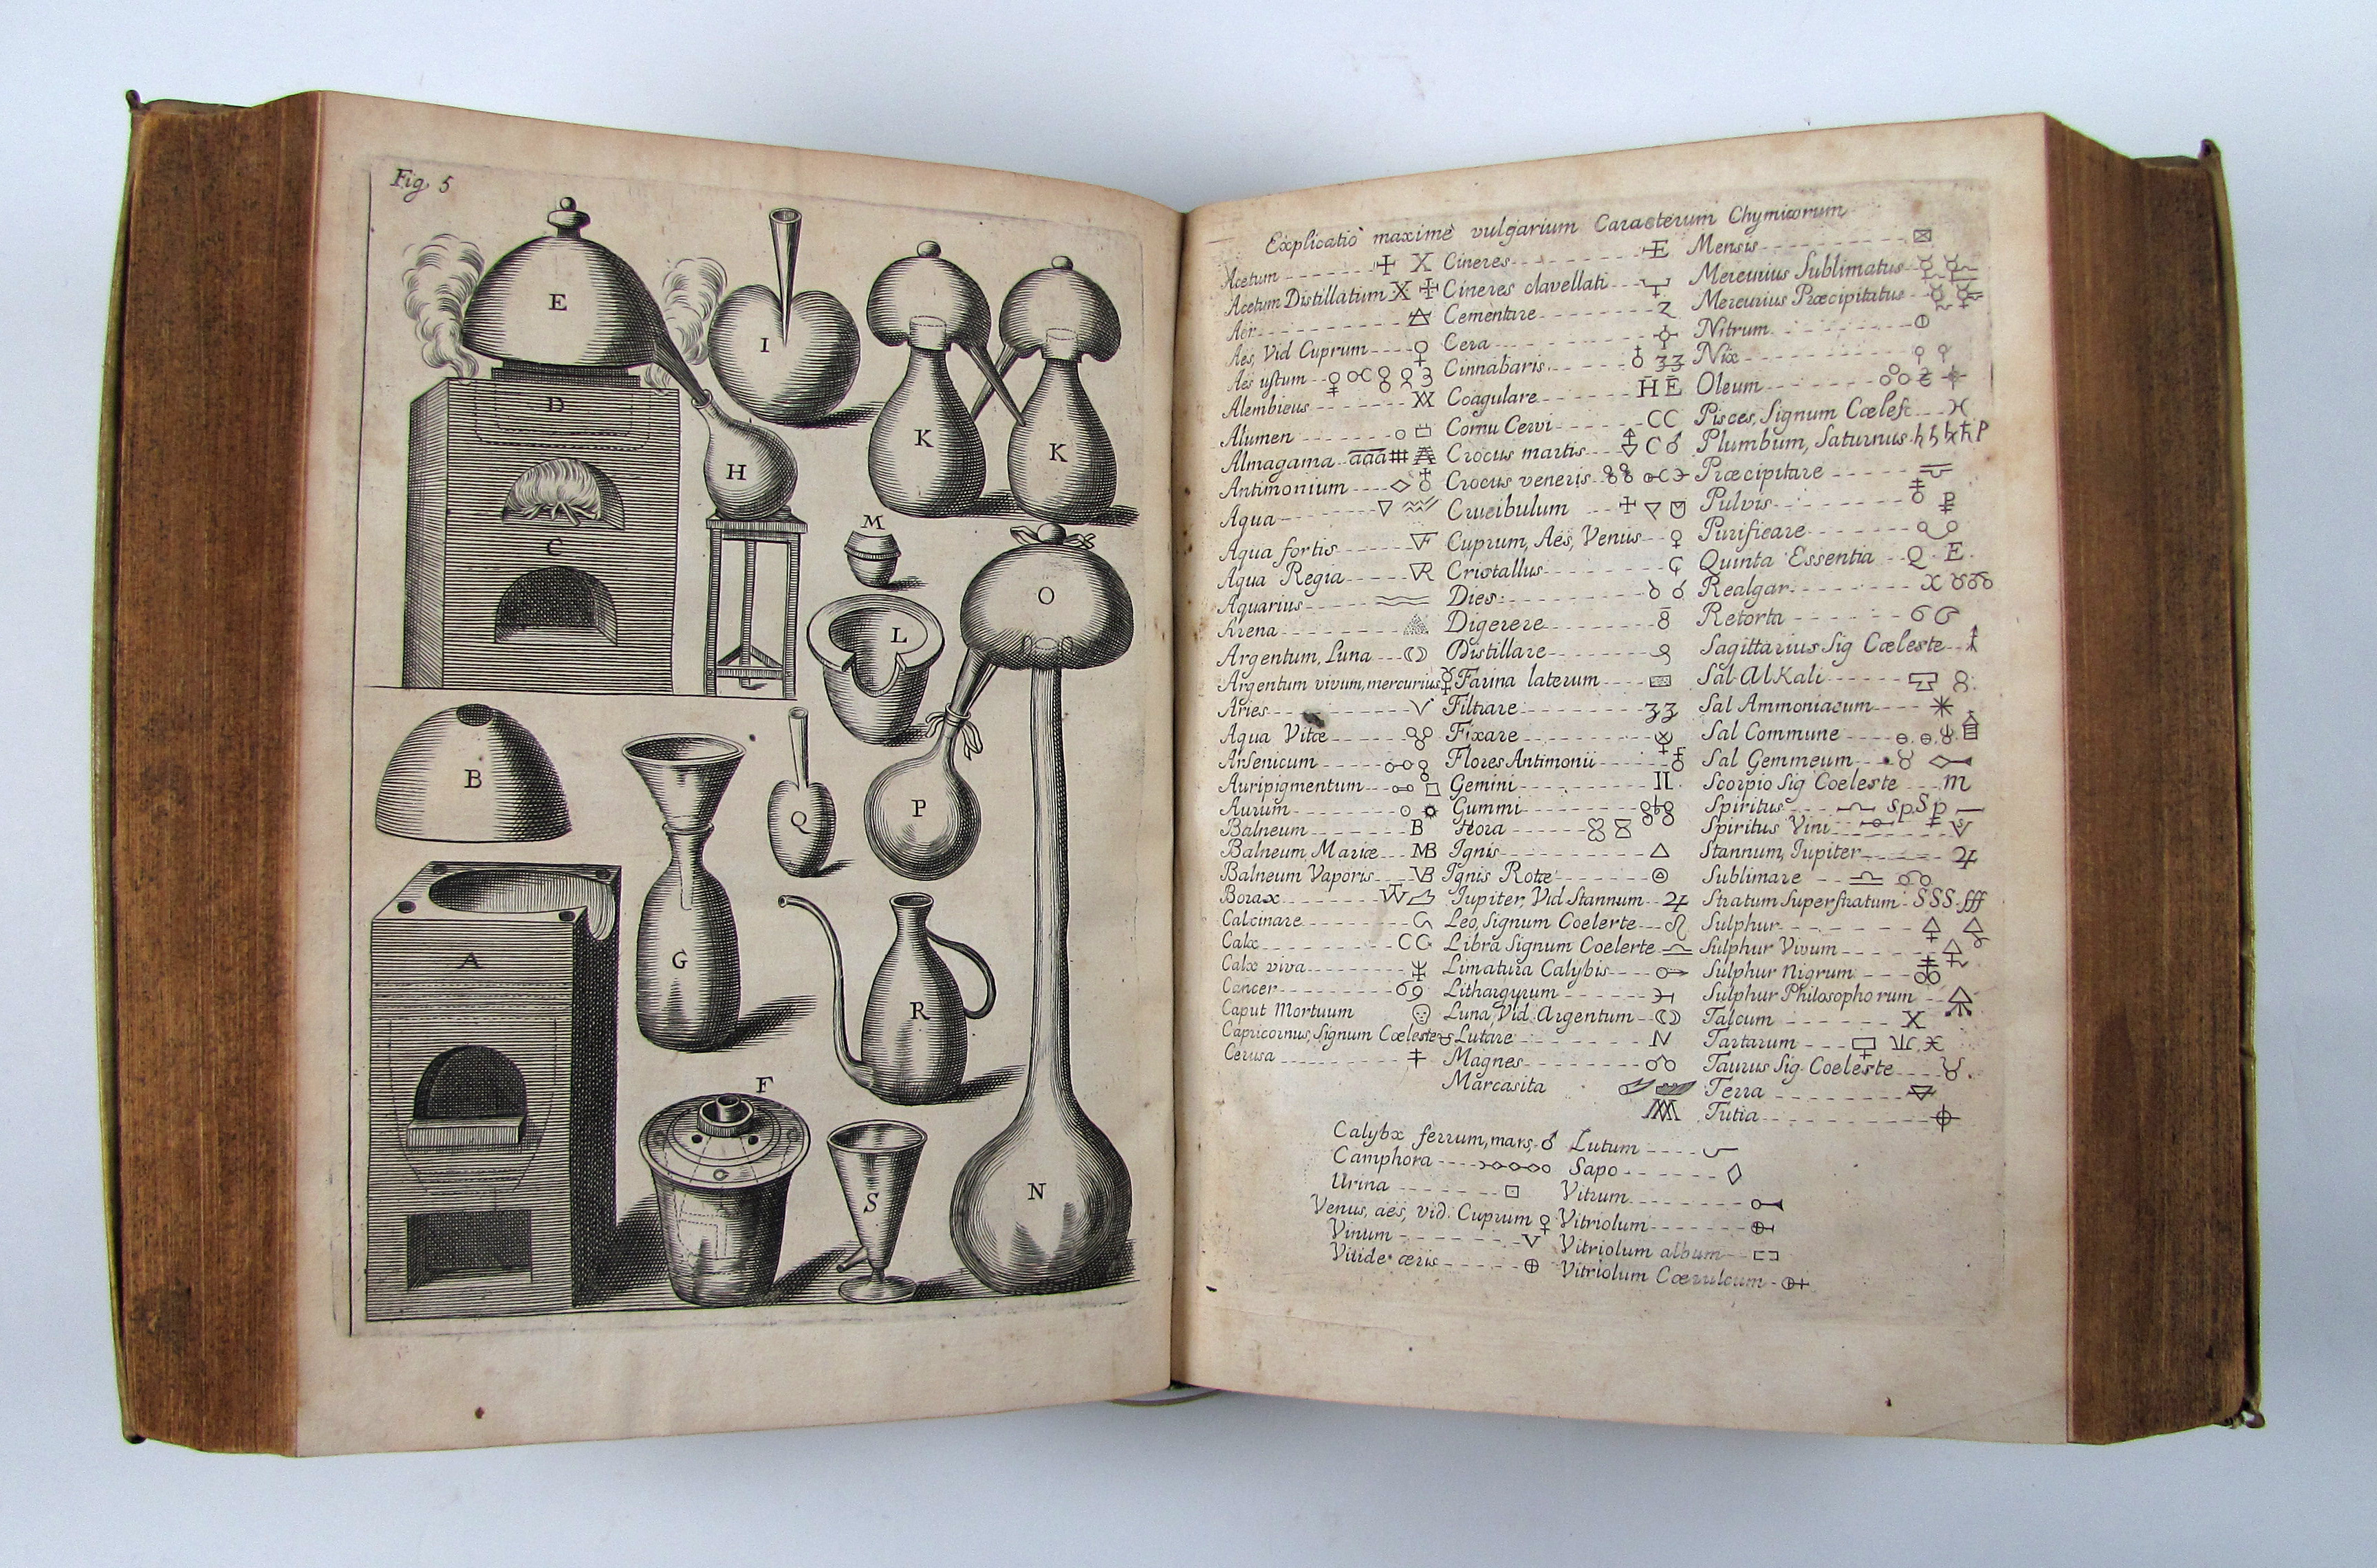 Fig. 5
E
I
D
K
K
H
C
M
L
O
B
Q
P
A
G
R
F
S
N
Explicatio maxime vulgarium Caracterum Chymicorum
Acetum
Acetum Distillatum
Aër
Aës, Vid Cuprum
Aës ustum
Alembicus
Alumen
Almagama aaa
Antimonium
Aqua
Aqua fortis
Aqua Regia
Aquarius
Arena
Argentum, Luna
Argentum vivum, mercurius
Aries
Aqua Vitæ
Arsenicum
Auripigmentum
Aurum
Balneum B
Balneum Mariæ MB
Balneum Vaporis VB
Borax
Calcinare
Calx
Calx viva
Cancer
Caput Mortuum
Capricornus, Signum Cæleste
Cerusa
Cineres
Cineres clavellati
Cementare
Cera
Cinnabaris
Coagulare
Cornu Cervi CC
Crocus martis
Crocus veneris
Crucibulum
Cuprum, Aës, Venus
Cristallus
Dies
Digerere
Distillare
Farina laterum
Filtrare
Fixare
Flores Antimonii
Gemini
Gummi
Hora
Ignis
Ignis Rotæ
Jupiter, Vid Stannum
Leo, Signum Coelerte
Libra Signum Coelerte
Limatura Calybis
Lithargyrum
Luna, Vid. Argentum
Lutare
Magnes
Marcasita
Mensis
Mercurius Sublimatus
Mercurius Præcipitatus
Nitrum
Nix
Oleum
Pisces, Signum Cælest
Plumbum, Saturnus
Præcipitare
Pulvis
Purificare
Quinta Essentia Q. E.
Realgar
Retorta
Sagittarius Sig Cæleste
Sal AlKali
Sal Ammoniacum
Sal Commune
Sal Gemmeum
Scorpio Sig Coeleste
Spiritus
Spiritus Vini
Stannum, Jupiter
Sublimare
Stratum Superstratum SSS. ſſſ
Sulphur
Sulphur Vivum
Sulphur Nigrum
Sulphur Philosophorum
Talcum
Tartarum
Taurus Sig. Coeleste
Terra
Tutia
Calybx ferrum, mars, ♂
Camphora
Urina
Venus, aës, vid. Cuprum ♀
Vinum
Viride æris
Lutum
Sapo
Vitrum
Vitriolum
Vitriolum album
Vitriolum Cæruleum